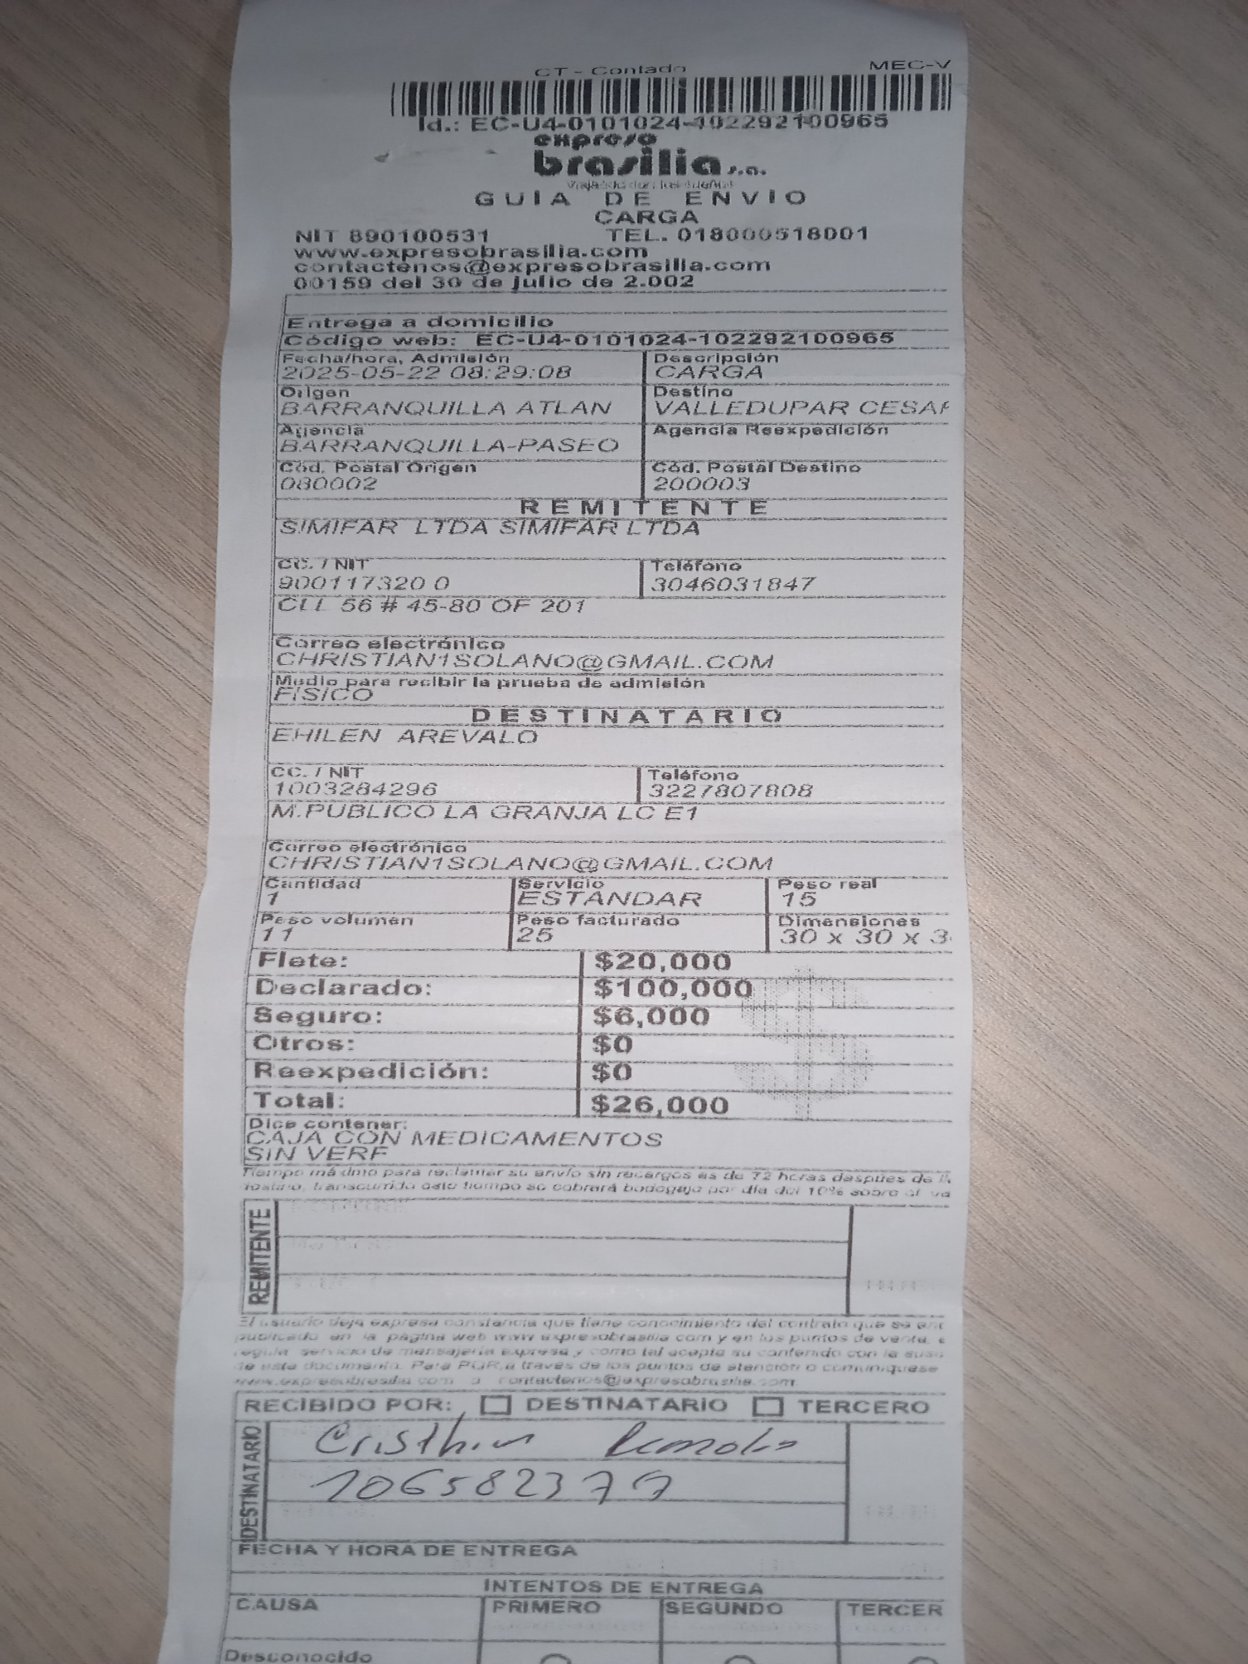 CT - Contado MEC-V
Id.: EC-U4-0101024-102292100965
expreso
brasilia s.a.
GUIA DE ENVIO
CARGA
NIT 890100531 TEL. 018000518001
www.expresobrasilia.com
contactenos@expresobrasilia.com
00159 del 30 de julio de 2.002
Entrega a domicilio
Código web: EC-U4-0101024-102292100965
Fecha/hora, Admisión Descripción
2025-05-22 08:29:08 CARGA
Origen Destino
BARRANQUILLA ATLAN VALLEDUPAR CESAR
Agencia Agencia Reexpedición
BARRANQUILLA-PASEO
Cód. Postal Origen Cód. Postal Destino
080002 200003
REMITENTE
SIMIFAR LTDA SIMIFAR LTDA
CC. / NIT Teléfono
900117320 0 3046031847
CLL 56 # 45-80 OF 201
Correo electrónico
CHRISTIAN1SOLANO@GMAIL.COM
Medio para recibir la prueba de admisión
FISICO
DESTINATARIO
EHILEN AREVALO
CC. / NIT Teléfono
1003284296 3227807808
M.PUBLICO LA GRANJA LC E1
Correo electrónico
CHRISTIAN1SOLANO@GMAIL.COM
Cantidad Servicio Peso real
1 ESTANDAR 15
Peso volumen Peso facturado Dimensiones
11 25 30 x 30 x 3
Flete: $20,000
Declarado: $100,000
Seguro: $6,000
Otros: $0
Reexpedición: $0
Total: $26,000
Dice contener:
CAJA CON MEDICAMENTOS
SIN VERF
Tiempo máximo para reclamar su envío sin recargos es de 72 horas despues de
transcurrido este tiempo se cobrará bodegaje por día del 10% sobre el
REMITENTE
El usuario deja expresa constancia que tiene conocimiento del contrato que se
publicado en la página web www.expresobrasilia.com y en los puntos de venta,
regula servicio de mensajería expresa y como tal acepta su contenido con la
de este documento. Para PQR a través de los puntos de atención o comuniquese
www.expresobrasilia.com o contactenos@expresobrasilia.com
RECIBIDO POR: DESTINATARIO TERCERO
DESTINATARIO
Cristhin
106582377
FECHA Y HORA DE ENTREGA
INTENTOS DE ENTREGA
CAUSA PRIMERO SEGUNDO TERCER
Desconocido